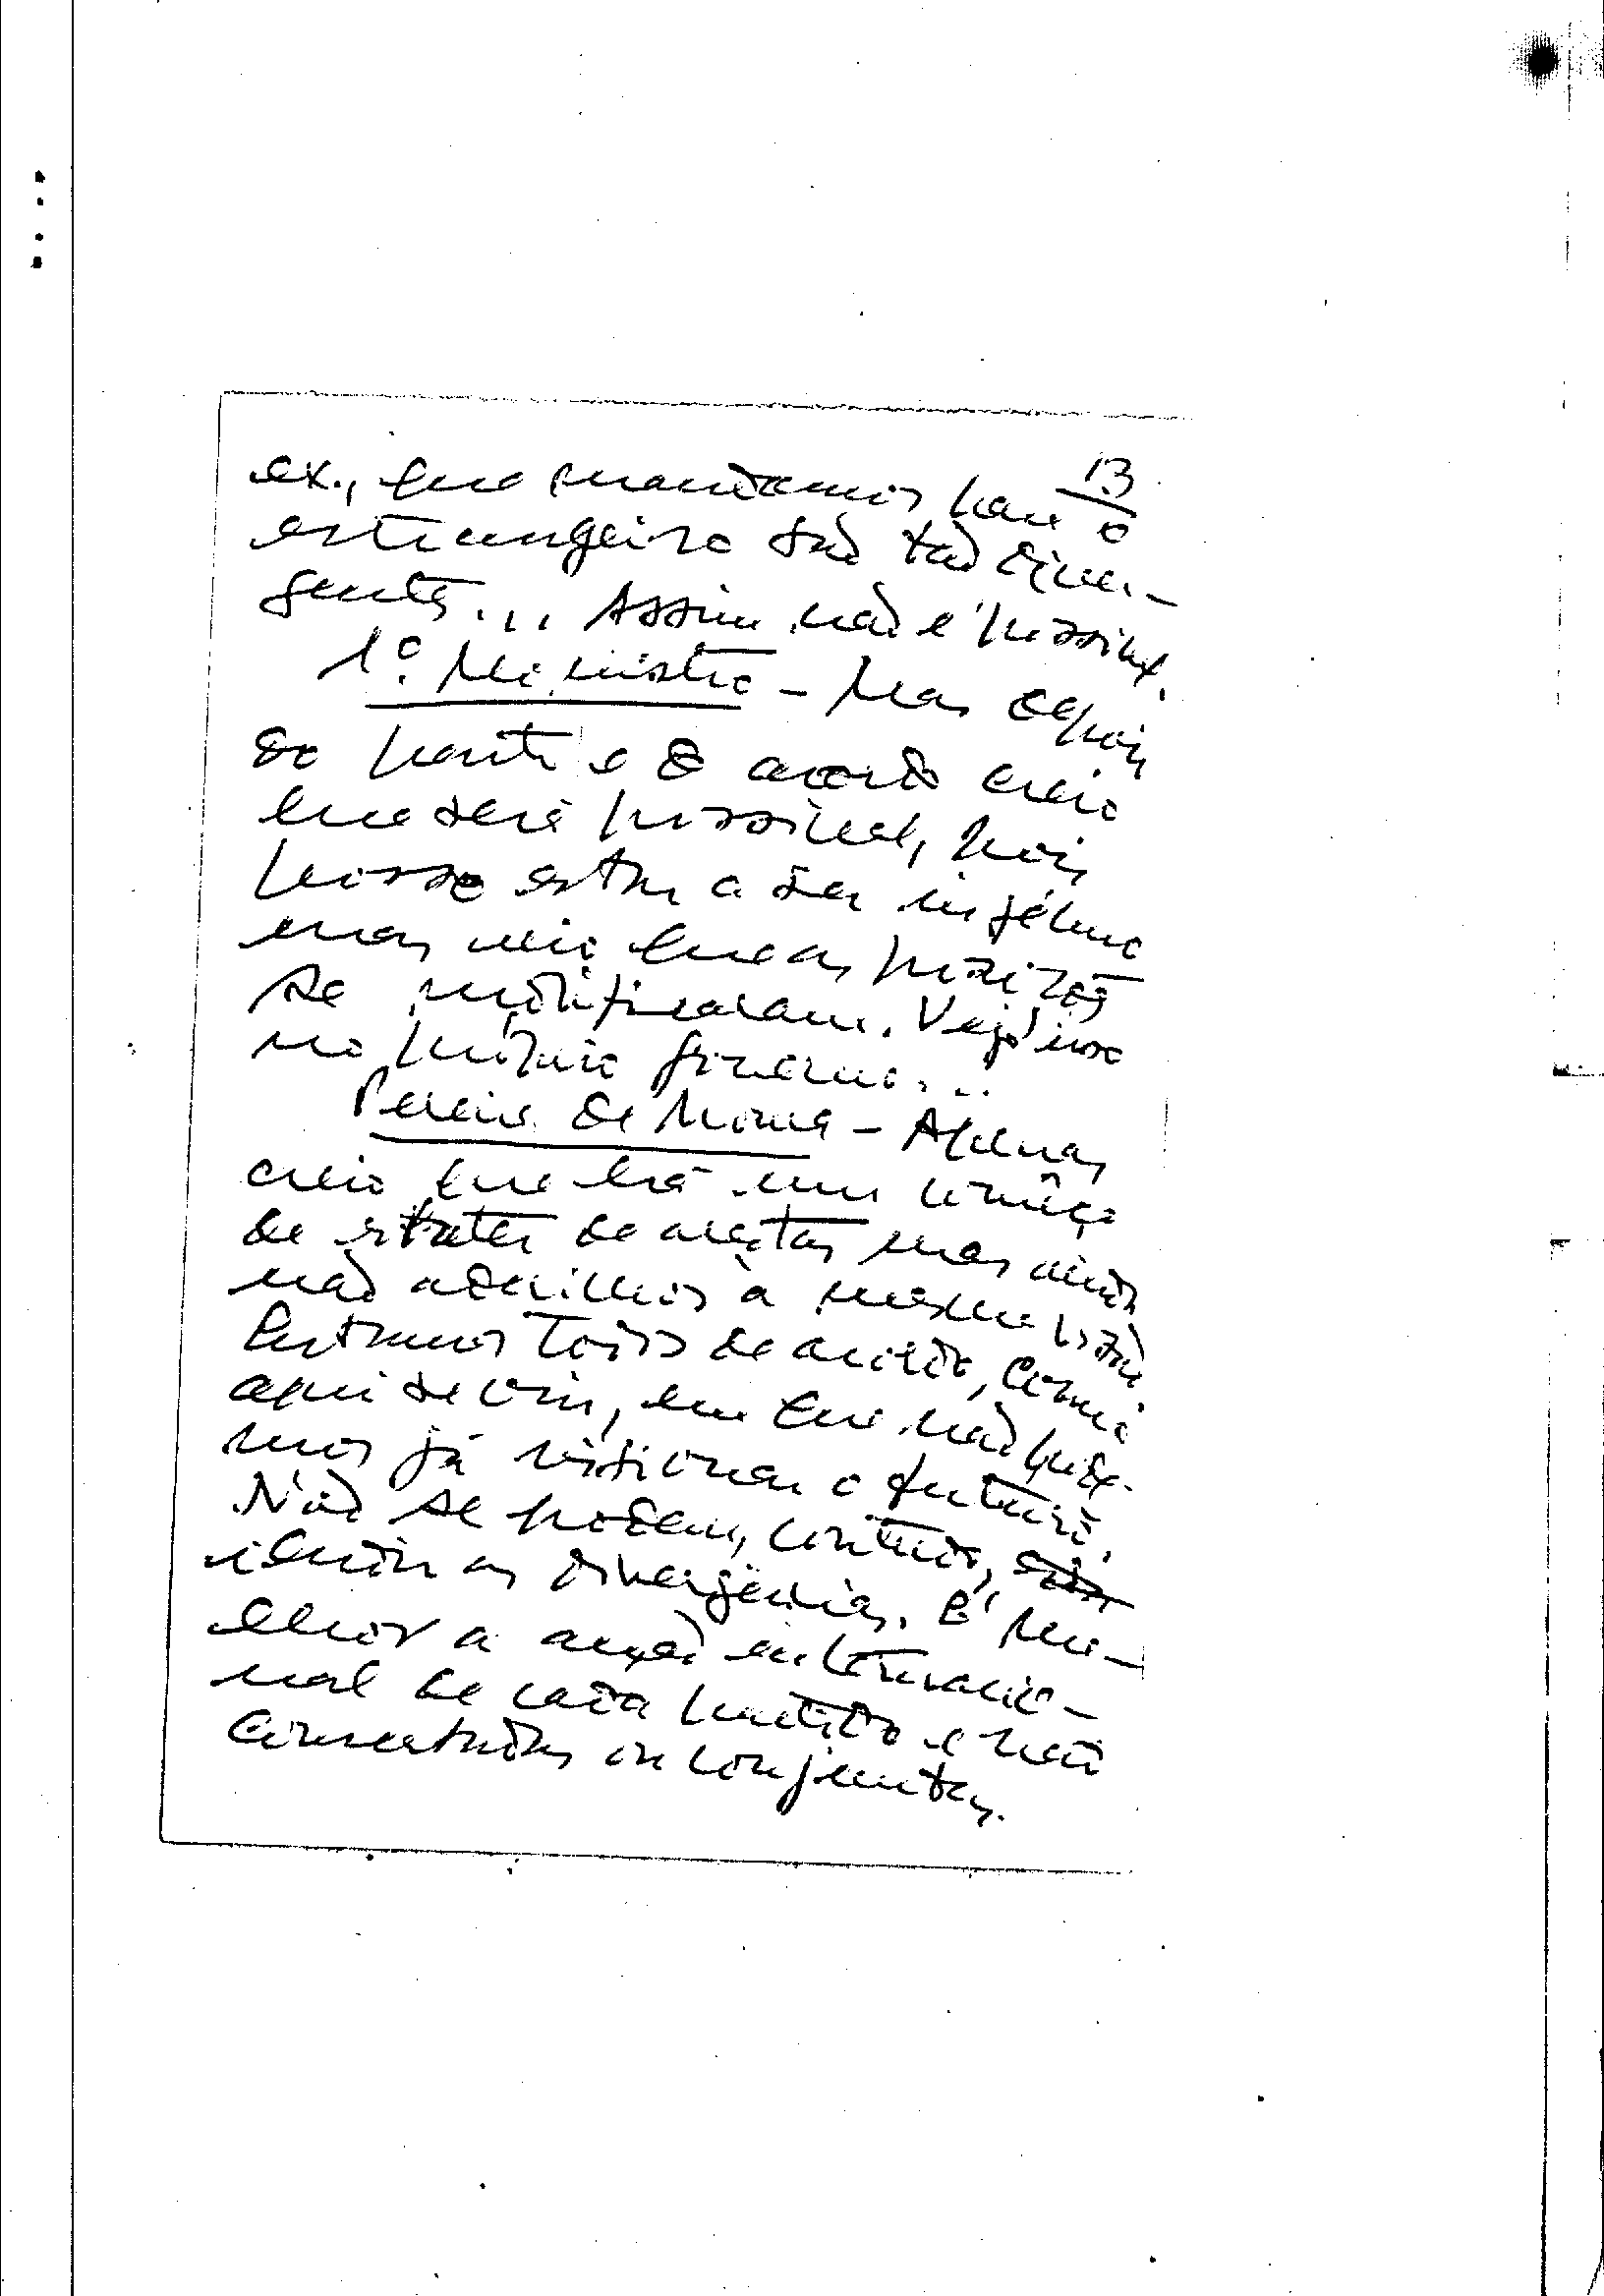 13
ex., que mandamos para o
estrangeiro são tão diver-
gentes... Assim não é possível.
1º. Ministro - Mas depois
do pacto e o acordo creio
que será possível, pois
posso estar a ser ingénuo
mas creio que as posições
se modificaram. Vejo isso
no próprio governo...
Pereira de Moura - Apenas
creio que há um começo
de de arestas mas ainda
não adquirimos a mesma visão
Estamos todos de acordo, como
aqui se viu, em que não pode-
mos já visionar o futuro.
Não se podem, contudo,
iludir as divergências. É me-
lhor a acção internacio-
nal de cada partido e não
concertadas ou conjuntas.